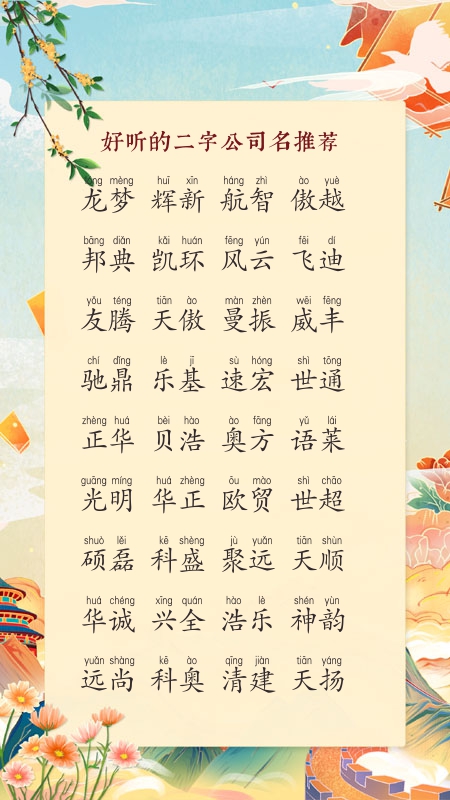 好听的二字公司名推荐
lóng mèng huī xīn háng zhì ào yuè
龙梦 辉新 航智 傲越
bāng diǎn kǎi huán fēng yún fēi dí
邦典 凯环 风云 飞迪
yǒu téng tiān ào màn zhèn wēi fēng
友腾 天傲 曼振 威丰
chí dǐng lè jī sù hóng shì tōng
驰鼎 乐基 速宏 世通
zhèng huá bèi hào ào fāng yǔ lái
正华 贝浩 奥方 语莱
guāng míng huá zhèng ōu mào shì chāo
光明 华正 欧贸 世超
shuò lěi kē shèng jù yuǎn tiān shùn
硕磊 科盛 聚远 天顺
huá chéng xīng quán hào lè shén yùn
华诚 兴全 浩乐 神韵
yuǎn shàng kē ào qīng jiàn tiān yáng
远尚 科奥 清建 天扬